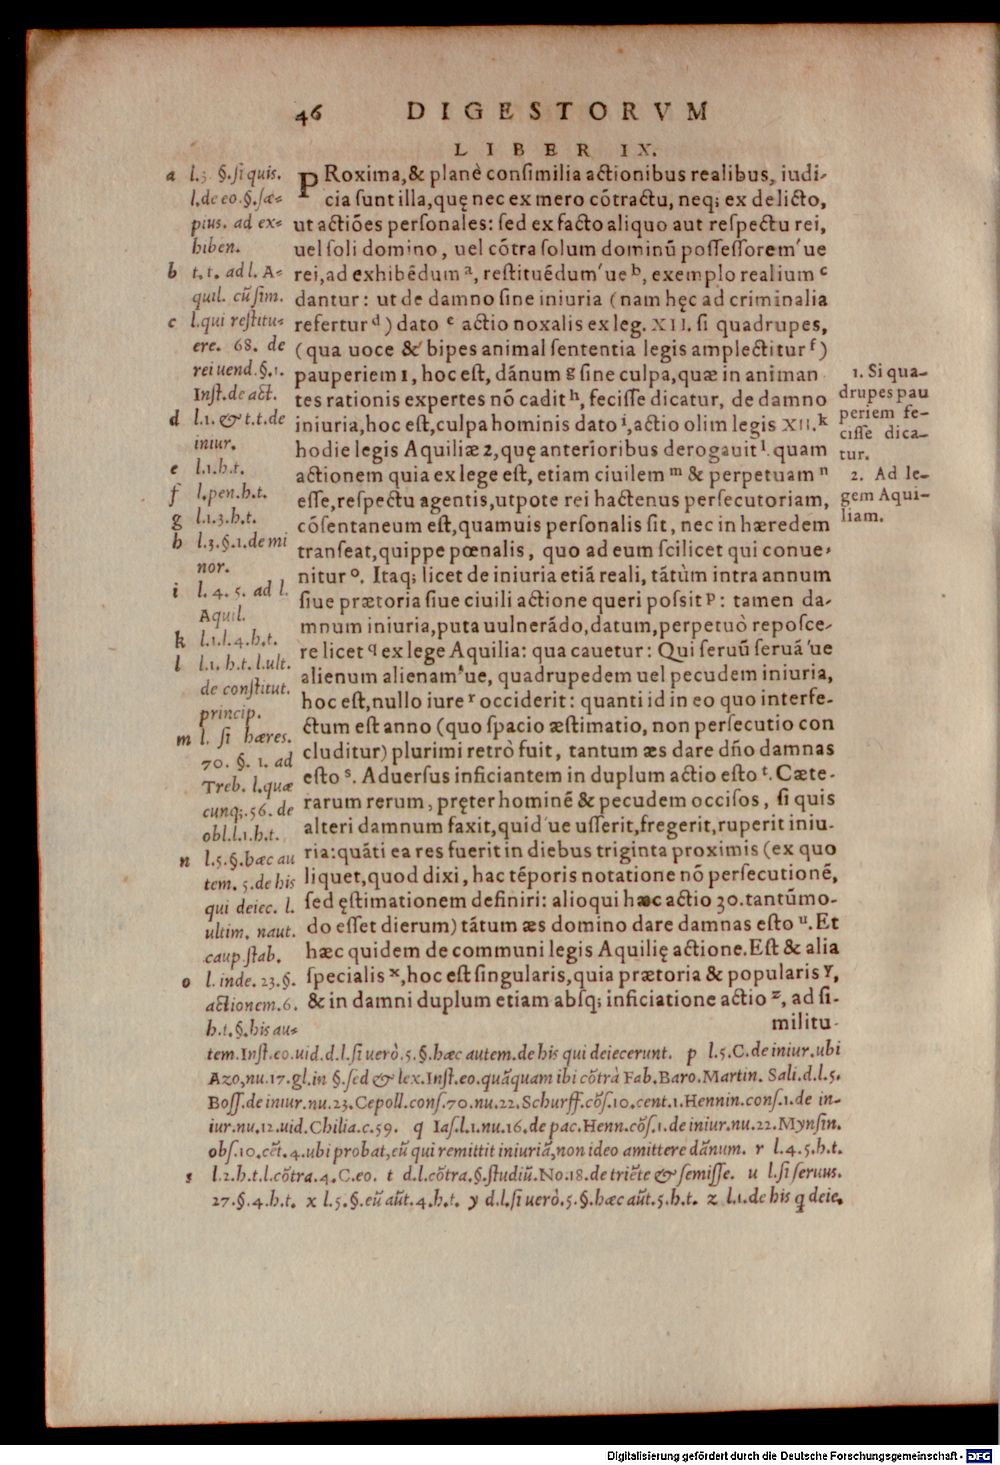 46 DIGESTORVM
LIBER IX.
PRoxima,& planè consimilia actionibus realibus, iudi-
cia sunt illa,quę nec ex mero cōtractu, neq; ex delicto,
ut actiões personales: sed ex facto aliquo aut respectu rei,
uel soli domino, uel cōtra solum dominū possessorem'ue
rei,ad exhibēdum a, restituēdum'ue b, exemplo realium c
dantur: ut de damno sine iniuria (nam hęc ad criminalia
refertur d) dato e actio noxalis ex leg. XII. si quadrupes,
(qua uoce & bipes animal sententia legis amplectitur f)
pauperiem 1, hoc est, dánum g sine culpa,quæ in animan
tes rationis expertes nō cadit h, fecisse dicatur, de damno
iniuria,hoc est,culpa hominis dato i,actio olim legis XII. k
hodie legis Aquiliæ 2,quę anterioribus derogauit l. quam
actionem quia ex lege est, etiam ciuilem m & perpetuam n
esse,respectu agentis,utpote rei hactenus persecutoriam,
cōsentaneum est,quamuis personalis sit, nec in hæredem
transeat,quippe pœnalis, quo ad eum scilicet qui conue-
nitur o. Itaq; licet de iniuria etiā reali, tātùm intra annum
siue prætoria siue ciuili actione queri possit p: tamen da-
mnum iniuria,puta uulnerādo,datum,perpetuò reposce-
re licet q ex lege Aquilia: qua cauetur: Qui seruū seruā'ue
alienum alienam'ue, quadrupedem uel pecudem iniuria,
hoc est,nullo iure r occiderit: quanti id in eo quo interfe-
ctum est anno (quo spacio æstimatio, non persecutio con
cluditur) plurimi retrò fuit, tantum æs dare dño damnas
esto s. Aduersus inficiantem in duplum actio esto t. Cæte-
rarum rerum, pręter hominē & pecudem occisos, si quis
alteri damnum faxit,quid'ue usserit,fregerit,ruperit iniu-
ria:quāti ea res fuerit in diebus triginta proximis (ex quo
liquet,quod dixi, hac tēporis notatione nō persecutionē,
sed ęstimationem definiri: alioqui hæc actio 30.tantūmo-
do esset dierum) tātum æs domino dare damnas esto u. Et
hæc quidem de communi legis Aquilię actione.Est & alia
specialis x,hoc est singularis,quia prætoria & popularis y,
& in damni duplum etiam absq; inficiatione actio z, ad si-
militu-
a l.3 §.si quis.
l.de eo.§.sæ-
pius. ad ex-
hiben.
b t.t. ad l. A-
quil. cū sim.
c l.qui restitu-
ere. 68. de
rei uend.§.1.
Inst.de act.
d l.1. & t.t.de
iniur.
e l.1.h.t.
f l.pen.h.t.
g l.1.3.h.t.
h l.3.§.1.de mi
nor.
i l. 4. 5. ad l.
Aquil.
k l.1.l.4.h.t.
l l.1. h.t. l.ult.
de constitut.
princip.
m l. si hæres.
70. §. 1. ad
Treb. l.quæ
cunq;.56. de
obl.l.1.h.t.
n l.5.§.hæc au
tem. 5.de his
qui deiec. l.
ultim. naut.
caup.stab.
o l. inde. 23.§.
actionem.6.
h.t.§.his au-
1. Si qua-
drupes pau
periem fe-
cisse dica-
tur.
2. Ad le-
gem Aqui-
liam.
tem.Inst.eo.uid.d.l.si uerò.5.§.hæc autem.de his qui deiecerunt. p l.5.C.de iniur.ubi
Azo,nu.17.gl.in §.sed & lex.Inst.eo.quāquam ibi cōtrà Fab.Baro.Martin. Sali.d.l.5.
Boss.de iniur.nu.23.Cepoll.cons.70.nu.22.Schurff.cōs.10.cent.1.Hennin.cons.1.de in-
iur.nu.12.uid.Chilia.c.59. q Ias.l.1.nu.16.de pac.Henn.cōs.1.de iniur.nu.22.Mynsin.
obs.10.cēt.4.ubi probat,eū qui remittit iniuriā,non ideo amittere dānum. r l.4.5.h.t.
s l.2.h.t.l.cōtra.4.C.eo. t d.l.cōtra.§.studiū.No.18.de triēte & semisse. u l.si seruus.
27.§.4.h.t. x l.5.§.eū aūt.4.h.t. y d.l.si uerò.5.§.hæc aūt.5.h.t. z l.1.de his q deie.
Digitalisierung gefördert durch die Deutsche Forschungsgemeinschaft - DFG